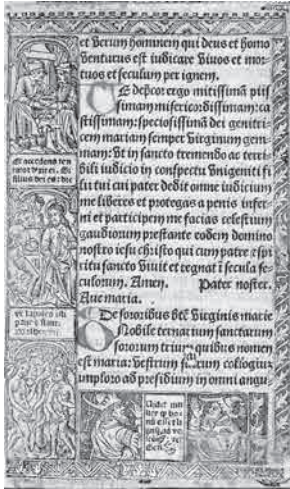 et verum hominem qui deus et homo
venturus est iudicare vivos et mor
tuos et seculum per ignem.
Te deprecor ergo mitissimā piis
simam misericordissimam: ca
stissimam: speciosissimā dei genitri
cem mariam semper virginum gem
mam: vt in sancto tremendo ac terri
bili iudicio in conspectu vnigeniti fi
lii tui cui pater dedit omne iudicium
me liberes et protegas a penis infer
ni et participem me facias celestium
gaudiorum prestante eodem domino
nostro iesu christo qui cum patre z spi
ritu sancto vivit et regnat ī secula se
culorum. Amen. Pater noster.
Ave maria.
De sororibus btē virginis marie
Nobile ternarium sanctarum
sororum trium quibus nomen
est maria: vestrum collogiuz
imploro ad presidium in omni angu
Et accedens ten
filius dei es: dic